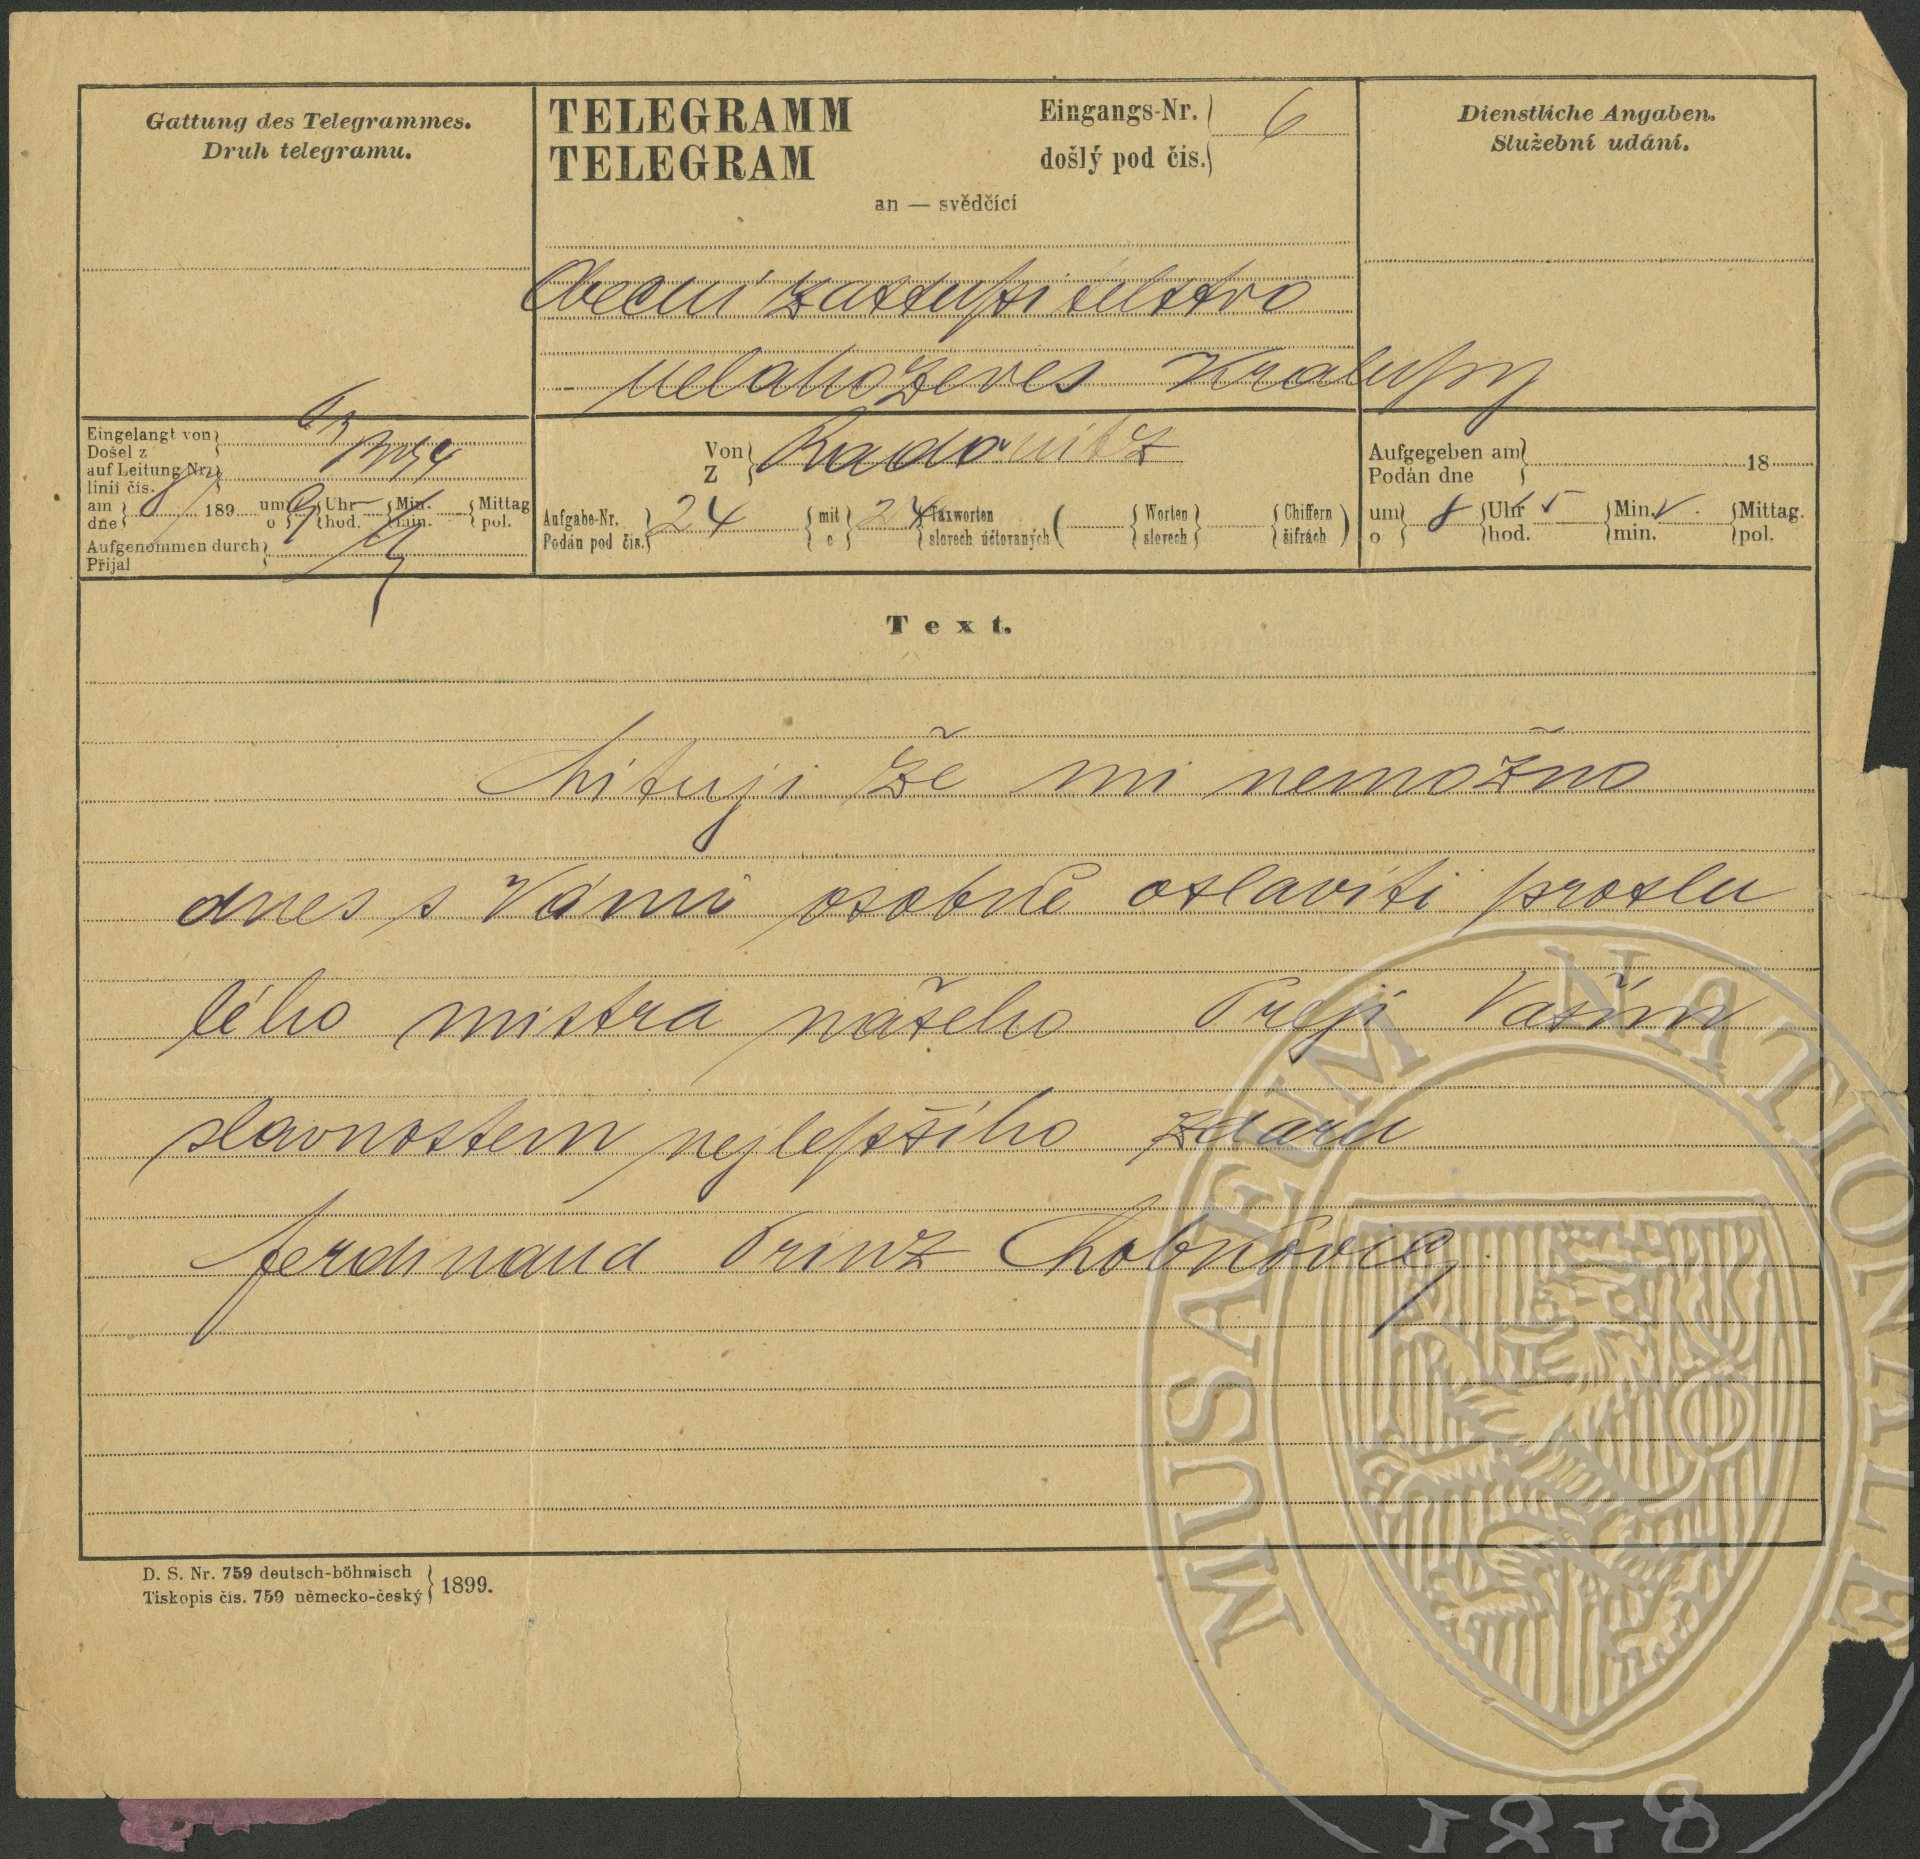 Gattung des Telegrammes.
Druh telegramu.
TELEGRAMM
TELEGRAM
Eingangs-Nr. 6
došlý pod čis.
an — svědčící
Dienstliche Angaben.
Služební udání.
Obecní zastupitelstvo
Nelahozeves Kralupy
Eingelangt von
Došel z
auf Leitung Nr.
linii čís.
am 8/9 189 um 9 Uhr Min. Mittag
dne o hod. min. pol.
Aufgenommen durch
Přijal
Von Radonitz
Z
Aufgabe-Nr. 24 mit 24 Taxworten Worten Chiffern
Podán pod čis. o slovech účtovaných slovech šifrách
Aufgegeben am 18
Podán dne
um 8 Uhr 5 Min. V. Mittag.
o hod. min. pol.
Text.
Lituji že mi nemožno
dnes s Vámi osobně oslaviti proslu
lého mistra našeho Preji Vašim
slavnostem nejlepšího zdaru
Ferdinand Prinz Lobkovic
D. S. Nr. 759 deutsch-böhmisch
Tiskopis čís. 759 německo-český 1899.
MUSAEUM NATIONALE
1818